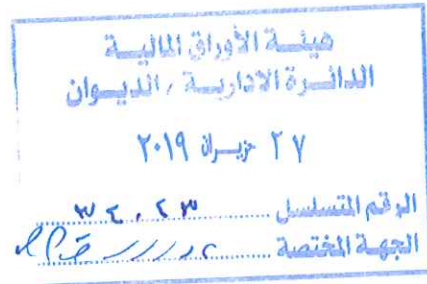 هيئة الأوراق المالية
الدائرة الادارية / الديوان
٢٧ حزيران ٢٠١٩
الرقم المتسلسل
الجهة المختصة